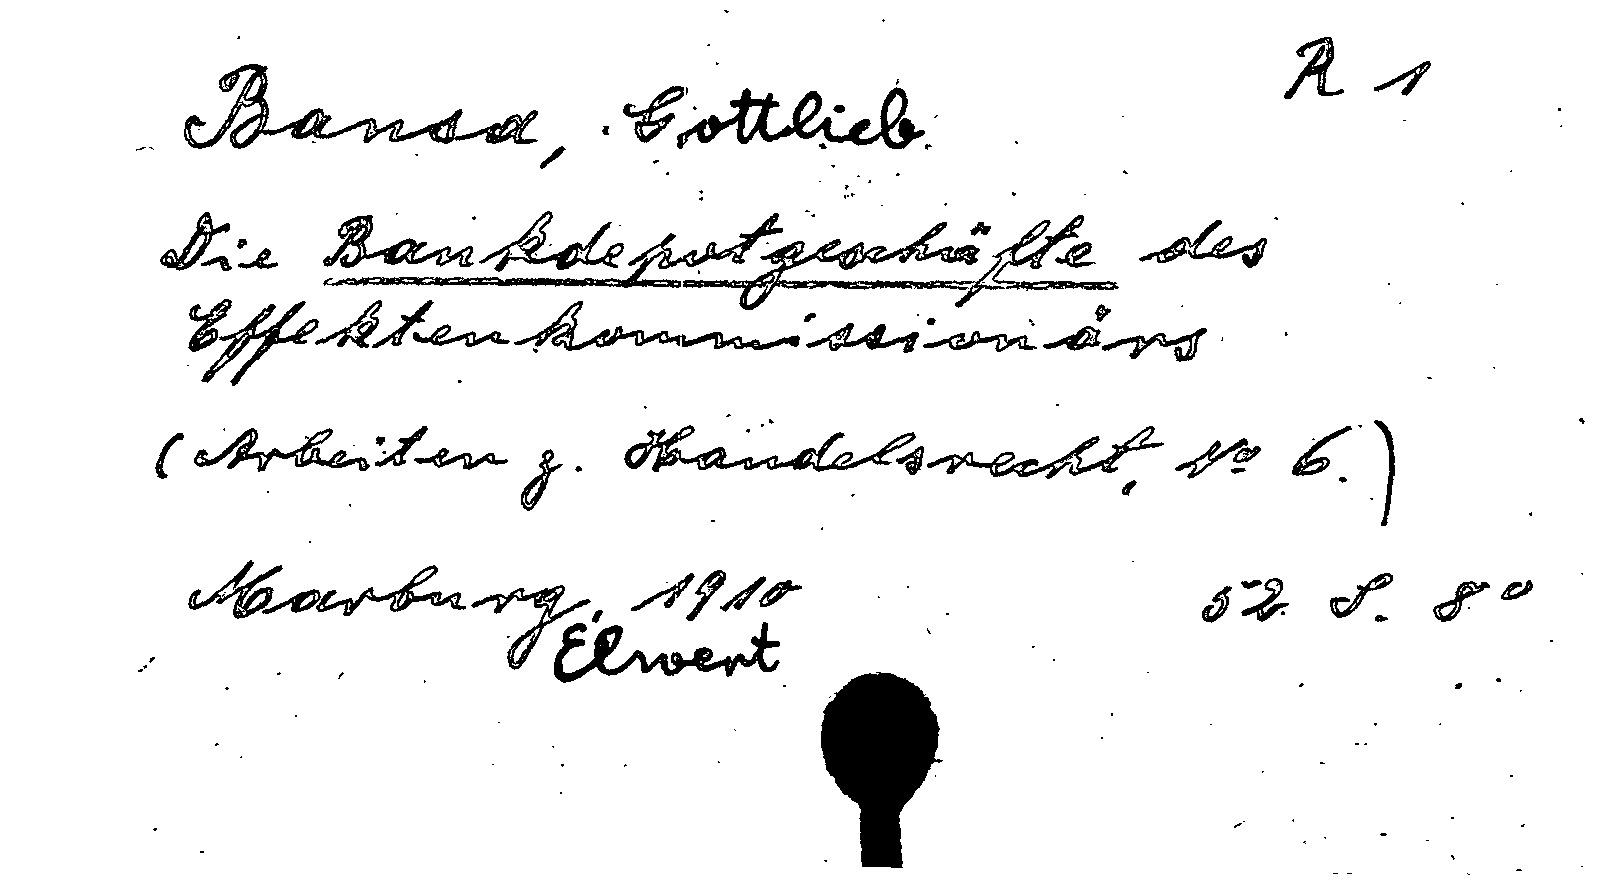 R 1
Bansa, Gottlieb
Die Bankdepotgeschäfte des
Effektenkommissionärs
(Arbeiten z. Handelsrecht, No 6.)
Marburg, 1910 52 S. 8°
Elwert